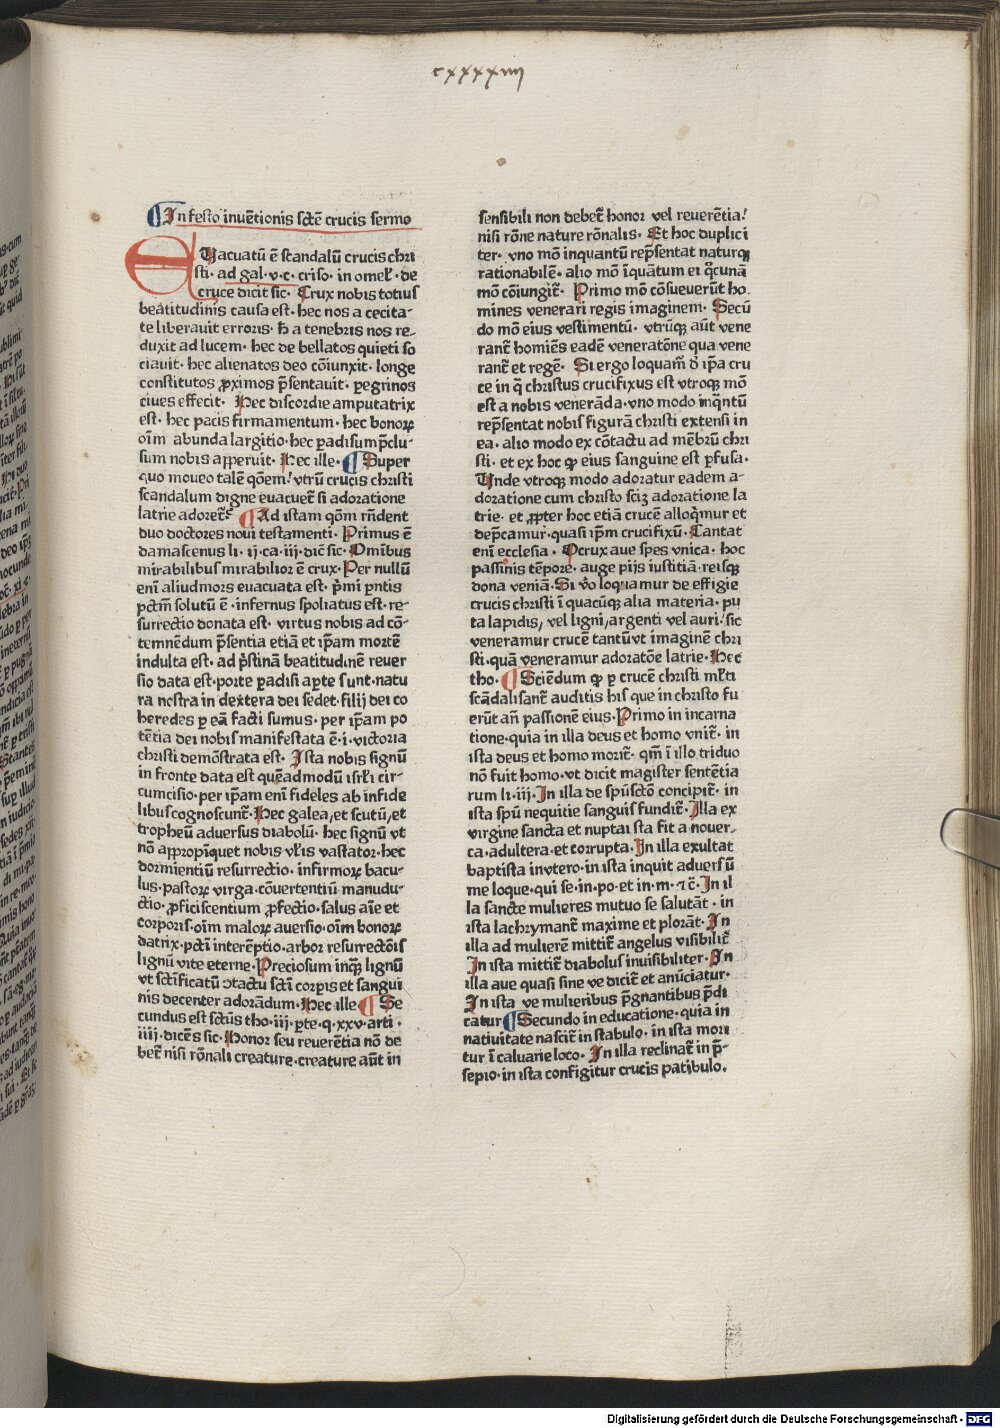 cxxxxiiii
In festo inuētionis sctē crucis sermo
EUacuatū ē scandalū crucis chri
sti. ad gal. v. c. criso. in omel'. de
cruce dicit sic. Crux nobis totius
beatitudinis causa est. hec nos a cecita-
te liberauit erroris. h̄ a tenebris nos re-
duxit ad lucem. hec de bellatos quieti so
ciauit. hec alienatos deo cōiunxit. longe
constitutos ꝓximos p̄sentauit. ꝑegrinos
ciues effecit. Hec discordie amputatrix
est. hec pacis firmamentum. hec bonoꝝ
oīm abunda largitio. hec ꝑadisum p̄clu-
sum nobis aꝑperuit. Hec ille. Super
quo moueo talē q̄oem! vtrū crucis christi
scandalum digne euacuet̄ si adoratione
latrie adoret̄ Ad istam qōm rn̄dent
duo doctores noui testamenti. Primus ē
damascenus li. ij. ca. iij. dic̄ sic. Omībus
mirabilibus mirabilior ē crux. Per nullū
enī aliud mors euacuata est. p̄mi p̄ntis
pctm̄ solutū ē. infernus spoliatus est. re-
surrectio donata est. virtus nobis ad cō-
temnēdum p̄sentia etiā et ip̄am mortē
indulta est. ad p̄stinā beatitudinē reuer
sio data est. porte ꝑadisi aꝑte sunt. natu
ra nostra in dextera dei sedet. filij dei co
heredes ꝑ eā facti sumus. per ip̄am po
tētia dei nobis manifestata ē. i. victoria
christi demōstrata est. Ista nobis signū
in fronte data est quēadmodū isrl'i cir-
cumcisio. per ip̄am enī fideles ab infide
libus cognoscunt̄. Hec galea, et scutū, et
tropheū aduersus diabolū. hec signū vt
nō aꝑpropīquet nobis vl'is vastator. hec
dormientiū resurrectio. infirmoꝝ bacu-
lus. pastoꝝ virga. cōuertentiū manudu-
ctio. ꝓficiscentium ꝓfectio. salus aīe et
corporis. oīm maloꝝ auersio. oīm bonoꝝ
datrix. pcti interēptio. arbor resurrectōis
lignū vite eterne. Preciosum inqꝫ lignū
vt sctīficatū ↄtactu sctī corpis et sangui
nis decenter adorādum. Hec ille Se
cundus est sctūs tho. iij. ꝑte. q. xxv. arti.
iiij. dicēs sic. Honor seu reuerētia nō de
bet̄ nisi rōnali creature. creature aūt in
sensibili non debet̄ honor vel reuerētia!
nisi rōne nature rōnalis. Et hoc duplici
ter. vno mō inquantū rep̄sentat naturaꝫ
rationabilē. alio mō īquātum ei q̄cunā
mō cōiungit̄. Primo mō cōsueuerūt ho
mines venerari regis imaginem. Secū
do mō eius vestimentū. vtrūqꝫ aūt vene
rant̄ homiēs eadē veneratōne qua vene
rant̄ et regē. Si ergo loquam̄ d' ip̄a cru
ce in q̄ christus crucifixus est vtroqꝫ mō
est a nobis venerāda. vno modo inq̄ntū
rep̄sentat nobis figurā christi extensi in
ea. alio modo ex cōtactu ad mēbrū chri
sti. et ex hoc qꝫ eius sanguine est ꝑfusa.
Unde vtroqꝫ modo adoratur eadem a-
doratione cum christo sciꝫ adoratione la
trie. et ꝓpter hoc etiā crucē alloq̄mur et
dep̄camur. quasi ip̄m crucifixū. Cantat
enī ecclesia. O crux aue spes vnica. hoc
passinis tēpore. auge pijs iustitiā. reisqꝫ
dona veniā. Si v̄o loquamur de effigie
crucis christi ī quacūqꝫ alia materia. pu
ta lapidis, vel ligni, argenti vel auri. sic
veneramur crucē tantū vt imaginē chri
sti. quā veneramur adoratōe latrie. Hec
tho. Sciēdum qꝫ ꝑ crucē christi ml'ti
scādalisant̄ auditis his que in christo fu
erūt an̄ passionē eius. Primo in incarna
tione. quia in illa deus et homo vnit̄. in
ista deus et homo morit̄. qm̄ ī illo triduo
nō fuit homo. vt dicit magister sentētia
rum li. iij. In illa de spūsctō concipit̄. in
ista spū nequitie sanguis fundit̄. Illa ex
virgine sancta et nupta ista fit a nouer-
ca. adultera. et corrupta. In illa exultat
baptista in vtero. in ista inquit aduersū
me loque. qui se. in po. et in. m. ⁊ c̄. In il
la sancte mulieres mutuo se salutāt. in
ista lachrymant̄ maxime et plorāt. In
illa ad mulierē mittit̄ angelus visibilit̄
In ista mittit̄ diabolus inuisibiliter. In
illa aue quasi sine ve dicit̄ et anūciatur.
In ista ve mulieribus p̄gnantibus p̄di
catur Secundo in educatione. quia in
natiuitate nascit̄ in stabulo. in ista mori
tur ī caluarie loco. In illa reclinat̄ in p̄-
sepio. in ista configitur crucis patibulo.
Digitalisierung gefördert durch die Deutsche Forschungsgemeinschaft - DFG